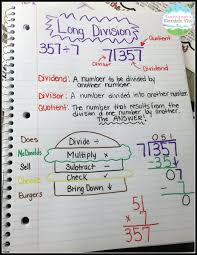 Long Division
Quotient
357÷7
7)357
Divisor
Dividend
Dividend: A number to be divided by
another number.
Divisor: A number divided into another number.
Quotient: The number that results from the
division of one number by another.
The ANSWER!
Does
Divide ÷
McDonalds
Multiply ×
Sell
Subtract -
Cheese
Check
Burgers
Bring Down ↓
051
7)357
-35↓
07
-7
0
51
× 7
357